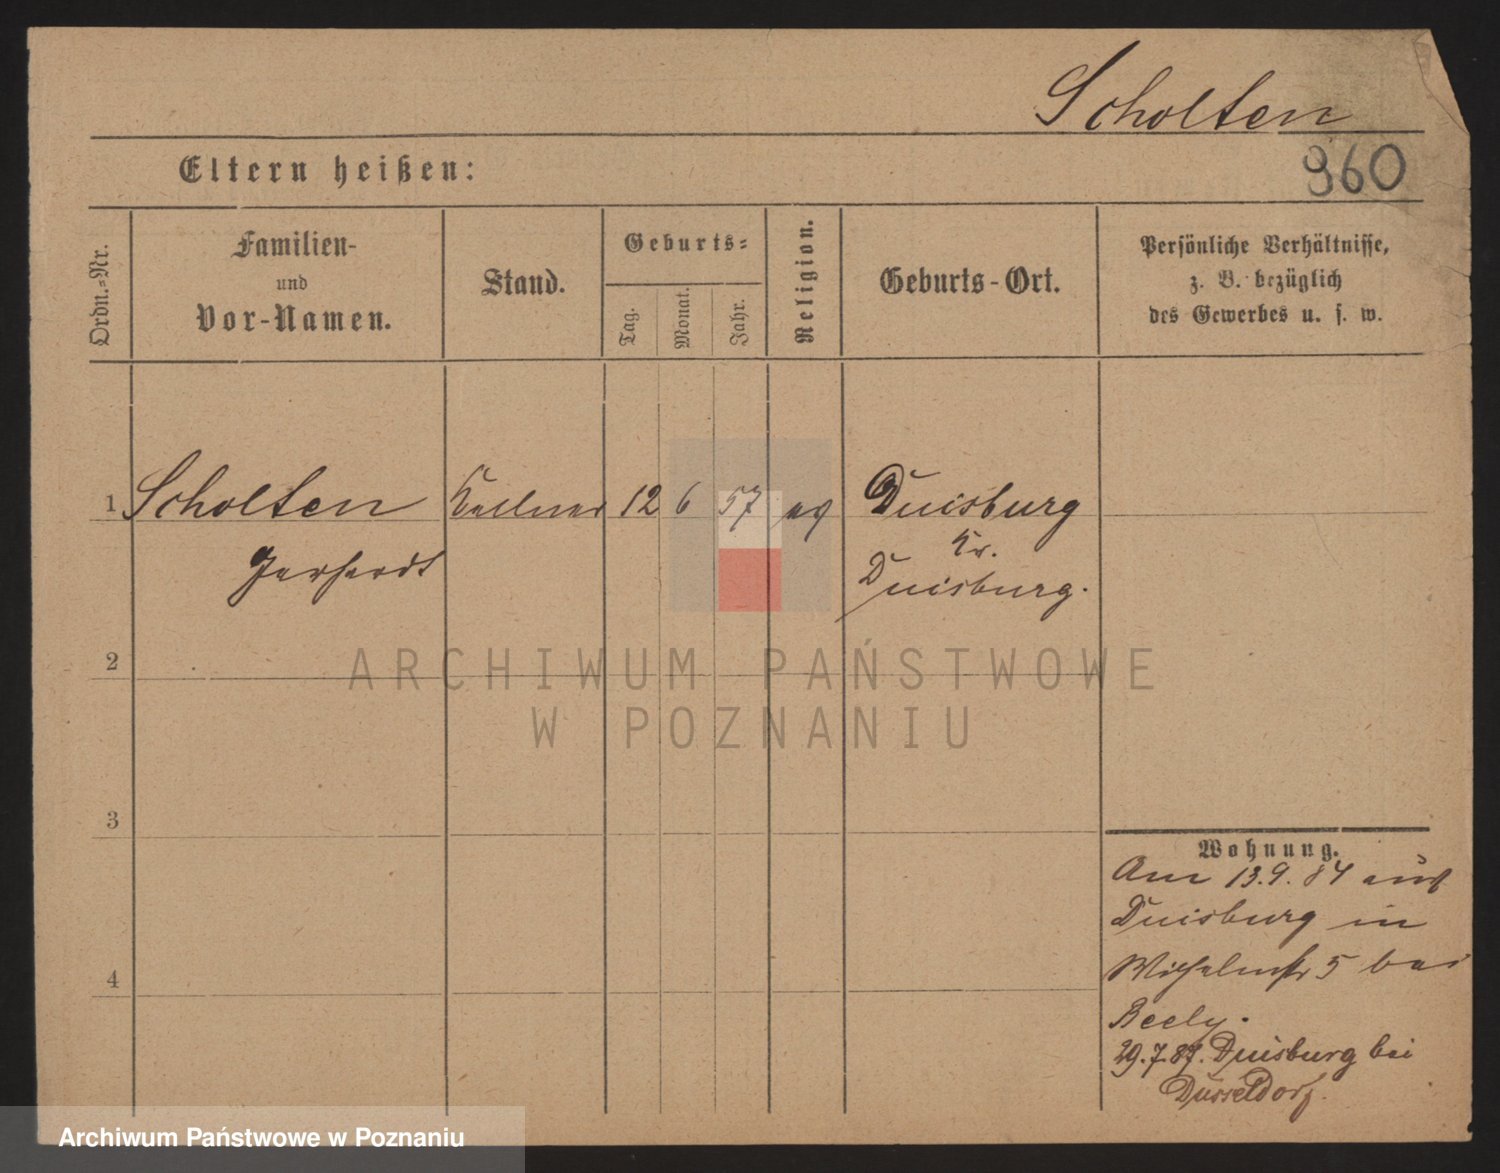 Scholten
960
Eltern heißen:
Ordn.-Nr.
Familien-
und
Vor-Namen.
Stand.
Geburts-
Tag.
Monat.
Jahr.
Religion.
Geburts-Ort.
Persönliche Verhältnisse,
z. B. bezüglich
des Gewerbes u. s. w.
1 Scholten Kellner 12 6 57 ev Duisburg
Kr.
Gerhardt Duisburg.
2
ARCHIWUM PAŃSTWOWE
W POZNANIU
3
Wohnung.
Am 13.9.84 aus
Duisburg in
Wilhelmstr 5 bei
4
Beely.
29.7.87. Duisburg bei
Düsseldorf.
Archiwum Państwowe w Poznaniu